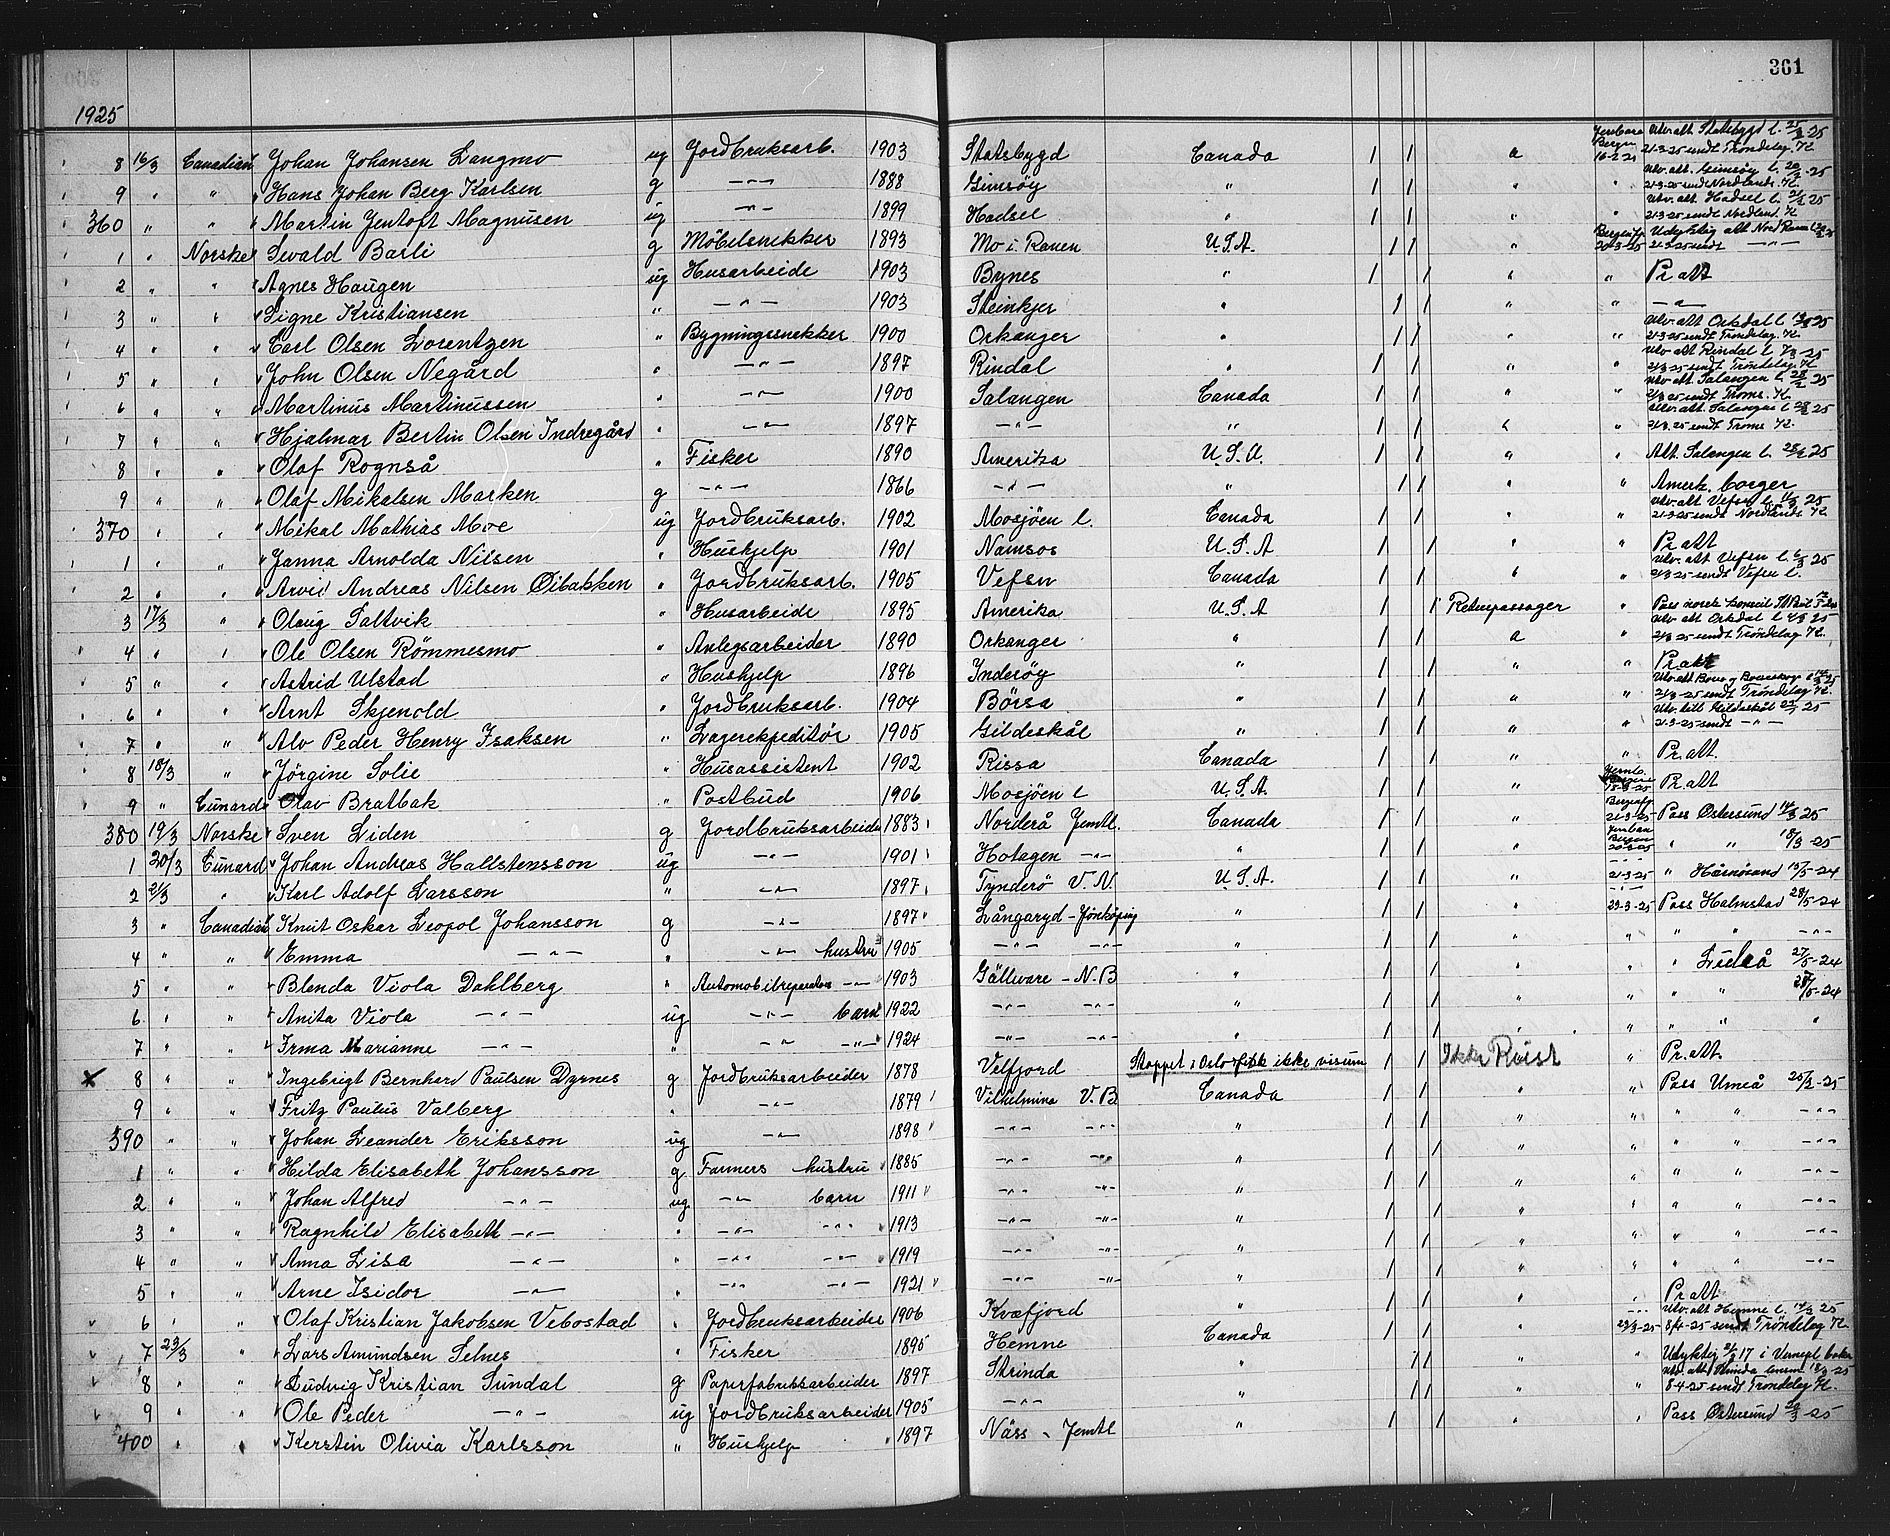 361
1925
8 16/3 Canadian Johan Johansen Langmo ug Jordbruksarb. 1903 Statsbygd Canada 1 1 a Jernbane Bergen 16-2-25 Utv. att Statsbygd l. 25/2-25 21-3-25 sendt Trøndelag. K
9 " " Hans Johan Berg Karlsen g -"- 1888 Gimsøy " 1 1 " " Utv. att. Gimsøy l. 21-3-25 sendt Nordlands. K.
360 " " Martin Jentoft Magnusen ug -"- 1899 Hadsel " 1 1 " Utv. att Hadsel l. 21/2 25 21-3-25 sendt Nordland. K
1 " Norske Sevald Barli g Möbelsnekker 1893 Mo i Ranen U.S.A. 1 1 " Bergensf. 20-3-25 Udyktig att Nord Ranen 21-3-25 sendt -"-
2 " " Agnes Haugen ug Husarbeide 1903 Bynes " 1 1 " " Pr att
3 " " Signe Kristiansen " -"- 1903 Steinkjer " 1 1 " " -"-
4 " " Carl Olsen Lorentzen " Bygningssnekker 1900 Orkanger " 1 1 " " Utv. att Orkdal l. 25 21-3-25 sendt Trøndelag. K
5 " " John Olsen Negård " -"- 1897 Rindal " 1 1 " " Utv att Rindal l. 7/3-25 21/3 25 sendt Trøndelag. K
6 " " Martinus Martinussen " -"- 1900 Salangen Canada 1 1 " " Utv att. Salangen l. 28/2 25 21/3 25 sendt Troms. K.
7 " " Hjalmar Bertin Olsen Indregård " -"- 1897 -"- " 1 1 " " Utv. att. Salangen l 28/2 25 21/3. 25 sendt Troms K.
8 " " Olaf Rognså " Fisker 1890 Amerika U.S.A. 1 1 " " Att. Salangen l. 28/2 25
9 " " Olaf Mikalsen Marken g -"- 1866 -"- " 1 1 " " Amerk. borger
370 " " Mikal Mathias Moe ug Jordbruksarb. 1902 Mosjöen l. Canada 1 1 " " Utv. att Vefsn l. 11/3 25 21-3-25 sendt Nordlands K.
1 " " Janna Arnolda Nilsen " Hushjelp 1901 Namsos U.S.A 1 1 " " Pr att
2 " " Arvid Andreas Nilsen Öibakken " Jordbruksarb. 1905 Vefsn Canada 1 1 " " Utv. att Vefsn l. 6/3 25 21/3-25 sendt Vefsn l.
3 17/3 " Olaug Saltvik " Husarbeide 1895 Amerika U.S.A 1 1 Returpassager " Pass norsk konsul St Paul
4 " " Ole Olsen Römmesmo " Anlegsarbeider 1890 Orkanger " 1 1 a " Utv att Orkdal l. 25 21/3-25 sendt Trøndelag K.
5 " " Astrid Ulstad " Hushjelp 1896 Inderöy " 1 1 " " Pr att
6 " " Arnt Skjenold " Jordbruksarb. 1904 Börsa " 1 1 " " Utv. att Börsa og Börseskogn l 21/3-25 sendt Trøndelag K.
7 " " Alv Peder Henry Isaksen " Lagerekspeditör 1905 Gildeskål " 1 1 " " Utv. till Gildeskål 25 21-3-25 sendt -"-
8 18/3 " Jörgine Solie " Husassistent 1902 Rissa Canada 1 1 " " Pr. att.
9 " Cunard Olav Bratbak " Postbud 1906 Mosjöen l U.S.A. 1 1 " Jernb. 18-3-25 Pr att
380 19/3 Norske Sven Liden g Jordbruksarbeider 1883 Norderö Jemtl. Canada 1 1 " Bergensf. 21-3-25 Pass Östersund 14/3 25
1 20/3 Cunard Johan Andreas Hallstensson ug -"- 1901 Hotagen -"- " 1 1 " Jernban Bergen 20-3-25 " " 18/3-25
2 21/3 " Karl Adolf Larsson " -"- 1897 Tynderö V.N. U.S.A. 1 1 " -"- 21-3-25 " Härnösand 15/5-24
3 " Canadian Knut Oskar Leopol Johansson g -"- 1897 Långaryd - Jönköping " 1 1 " -"- 23-3-25 Pass Halmstad 28/5-24
4 " " Emma -"- " -"- hustru 1905 -"- -"- " 1 1 " " " " -"-
5 " " Blenda Viola Dahlberg " Automobilreparatör -"- 1903 Gällivare - N.B " 1 1 " " " Luleå 27/5-24
6 " " Anita Viola -"- ug -"- barn 1922 -"- -"- " 1 1 " " " " 27/5-24
7 " " Irma Marianne -"- " -"- -"- 1924 -"- -"- " 1 1 " " " " "
x 8 " " Ingebrigt Bernhard Paulsen Dyrnes g Jordbruksarbeider 1878 Velfjord Stoppet i Oslo fikk ikke visum 1 1 Ikke Reist " Pr. att.
9 " " Fritz Paulus Valberg " -"- 1879 Vilhelmina V.B Canada 1 1 " " Pass Umeå 25/2-25
390 " " Johan Leander Eriksson ug -"- 1898 -"- -"- " 1 1 " " " " -"-
1 " " Hilda Elisabeth Johansson g Farmers hustru 1885 -"- -"- " 1 1 " " " " -"-
2 " " Johan Alfred -"- ug -"- barn 1911 -"- -"- " 1 1 " " " " -"-
3 " " Ragnhild Elisabeth -"- " -"- -"- 1913 -"- -"- " 1 1 " " " " -"-
4 " " Anna Lisa -"- " -"- -"- 1919 -"- -"- " 1 1 " " " " -"-
5 " " Arne Isidor -"- " -"- -"- 1921 -"- -"- " 1 1 " " " " "
6 " " Olaf Kristian Jakobsen Vebostad " Jordbruksarbeider 1906 Kvæfjord " 1 1 " " Pr att
7 23/3 " Lars Amundsen Selnes " Fisker 1895 Hemne Canada 1 1 " -"- 23/3-25 Utv. att Hemne l. 14/3 25 8/4-25 sendt Trøndelag K.
8 " " Ludvig Kristian Sundal g Papirfabriksarbeider 1897 Strinda " 1 1 " " Udyktig 17 i Vernepl. boken
9 " " Ole Peder -"- ug Jordbruksarbeider 1905 -"- " 1 1 " " Utv. att Strinda 18/3-25 8-4-25 sendt Trøndelag K.
400 " " Kerstin Olivia Karlsson " Hushjelp 1897 Näss - Jemtl " 1 1 " " Pass Östersund 20/3-25